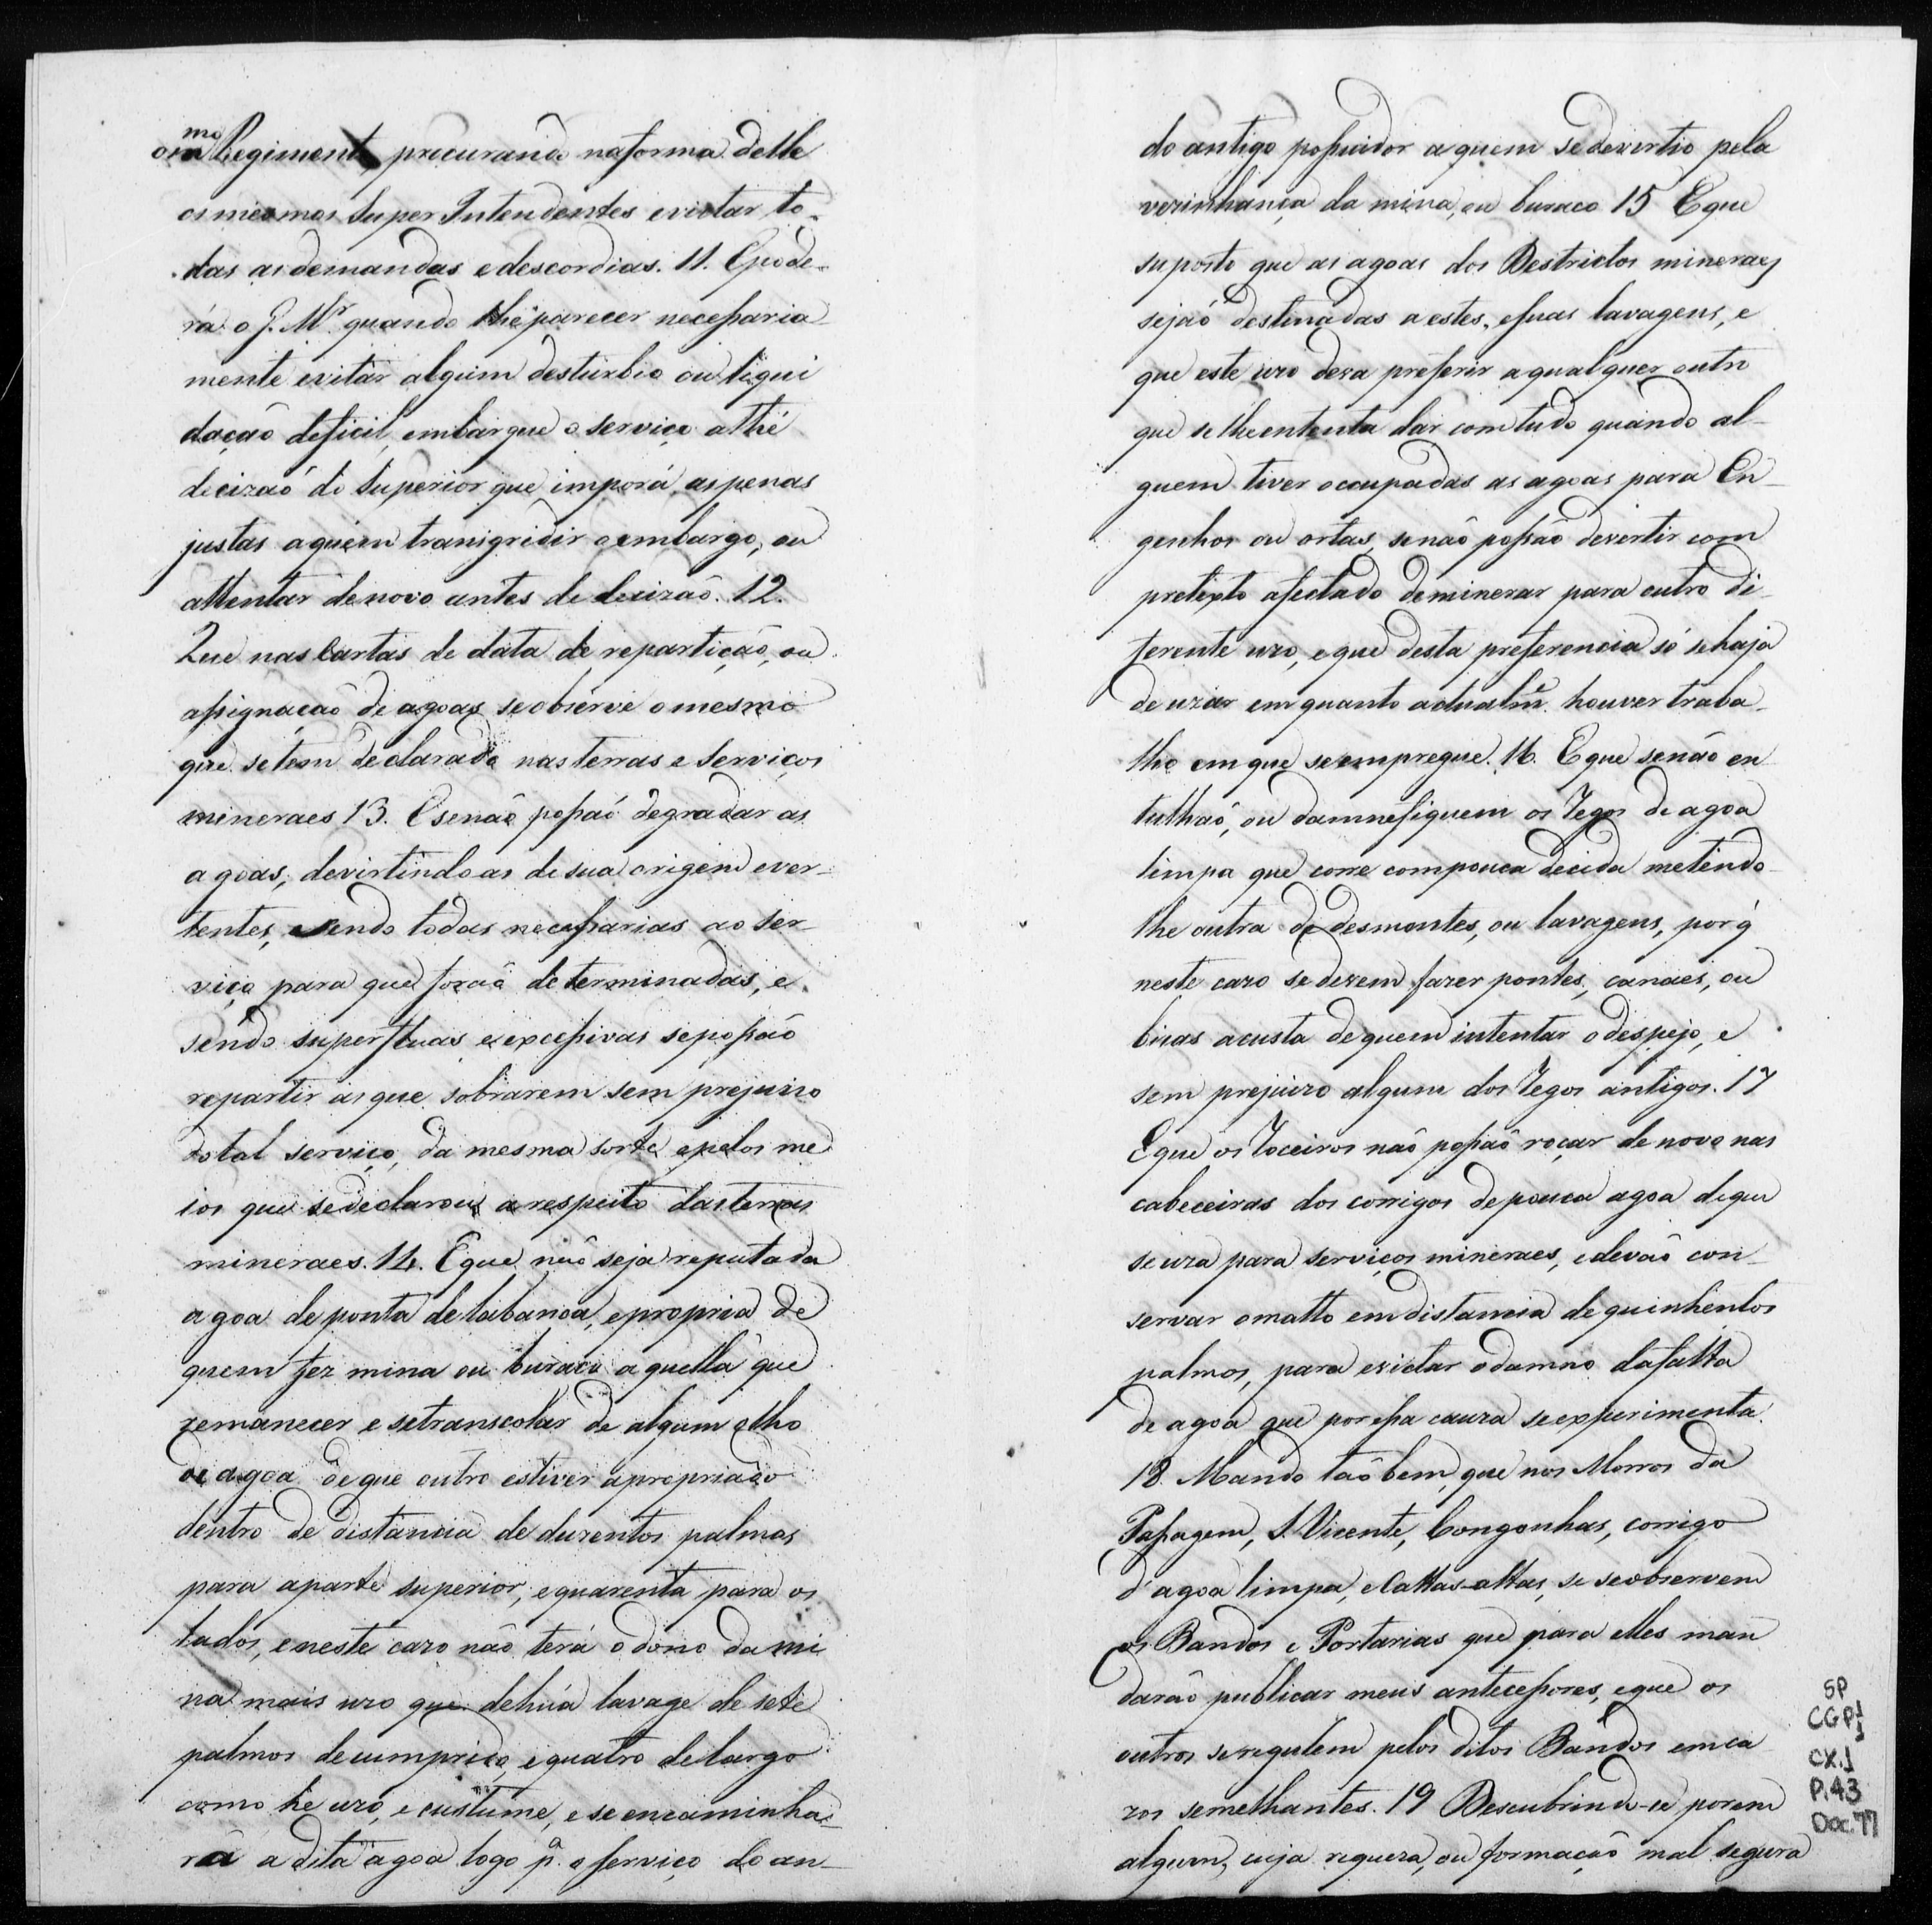 o mmo Regimento, procurando na forma delle
os mesmos Super Intendentes evictar to-
das as demandas e descordias. 11. E pode-
rá o G. Mr. quando lhe parecer necessaria
mente evitar algum desturbio ou liqui
dação deficil, embargue o serviço athé
decizaõ do Superior que imporá as penas
justas aquem transgridir o embargo, ou
attentar de novo antes de decizaõ. 12.
Que nas Cartas de data de repartiçaõ, ou
assignaçaõ de agoas se observe o mesmo
que se tem declarado nas terras e serviços
mineraes 13. E senaõ possaõ degradar as
agoas, devirtindo as de sua origem e ver-
tentes, sendo todas necessarias ao ser-
viço para que foraõ determinadas, e
sendo superfluas e excessivas se possaõ
repartir as que sobrarem sem prejuizo
do tal serviço, da mesma sorte e pelos me
ios que se declarou a respeito das terras
mineraes. 14. E que naõ seja reputada
agoa de ponta de labanca, e propria de
quem fez mina ou buraco aquella que
remanecer e se transcolar de algum olho
de agoa de que outro estiver apropriado
dentro de distancia de duzentos palmos
para a parte superior, e quarenta para os
lados, e neste cazo não terá o dono da mi
na mais uzo que de húa lavage de sete
palmos de cumprido, e quatro de largo
como he uzo, e custume, e se encaminha-
rá a dita agoa logo pa. o serviço do an-
do antigo possuidor a quem se devertio pela
vezinhança da mina, ou buraco 15 E que
suposto que as agoas dos Destrictos mineraes
sejaõ destinadas a estes, e suas lavagens, e
que este uzo deva preferir a qualquer outro
que se lhe ententa dar com tudo quando al-
guem tiver occupadas as agoas para En-
genhos ou ortas, se naõ possaõ devertir com
pretexto afectado de minerar para outro di-
ferente uzo, e que desta preferencia só se haja
de uzar em quanto actualme. houver traba-
lho em que se empregue. 16. E que senão en
tulhaõ, ou damnefiquem os Regos de agoa
limpa que corre com pouca decida metendo-
lhe outra de desmontes, ou lavagens, por q̃
neste cazo se devem fazer pontes, canaes, ou
bicas a custa de quem intentar o despejo, e
sem prejuizo algum dos Regos antigos. 17
E que os Roceiros não possaõ roçar de novo nas
cabeceiras dos corrigos de pouca agoa de que
se uza para serviços mineraes, e devaõ con-
servar o matto em distancia de quinhentos
palmos, para evictar o damno da falta
de agoa que por essa cauza se experimenta.
18 Mando taõ bem, que nos Morros da
Passagem, S. Vicente, Congonhas, corrigo
d'agoa limpa, e Cattas-altas, se se observem
os Bandos e Portarias que para elles man
daraõ publicar meus antecessores, e que os
outros se regulem pelos ditos Bandos em ca
zos semelhantes. 19 Descubrindo-se porem
algum, cuja riqueza, ou formaçaõ mal segura
SP
CGP1
1
CX.1
P.43
Doc.77